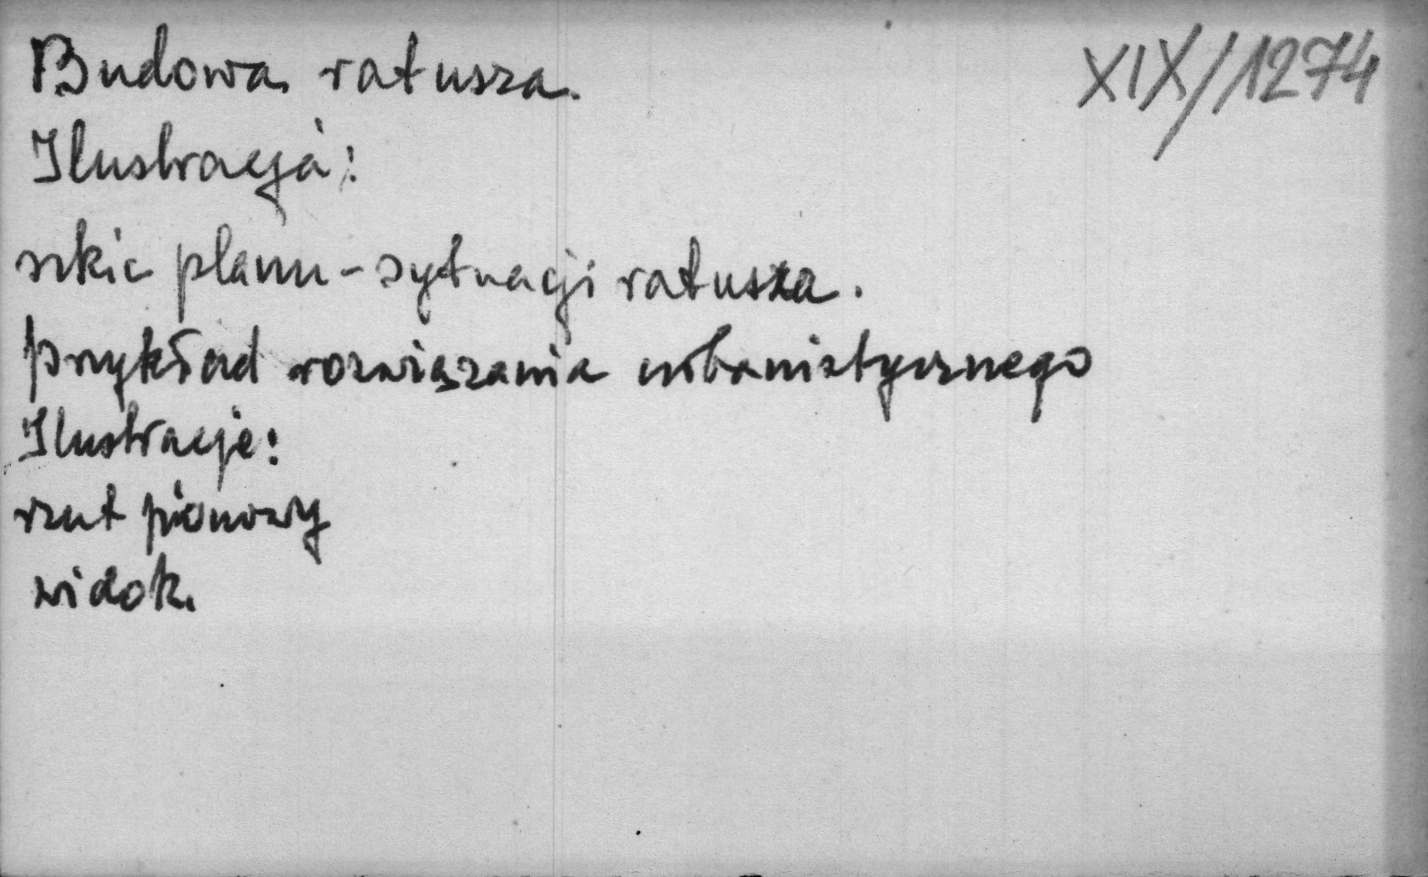 Budowa ratusza.
XIX/1274
Ilustracja:
szkic planu - sytuacji ratusza.
przykład rozwiązania urbanistycznego
Ilustracje:
rzut pionowy
widok.